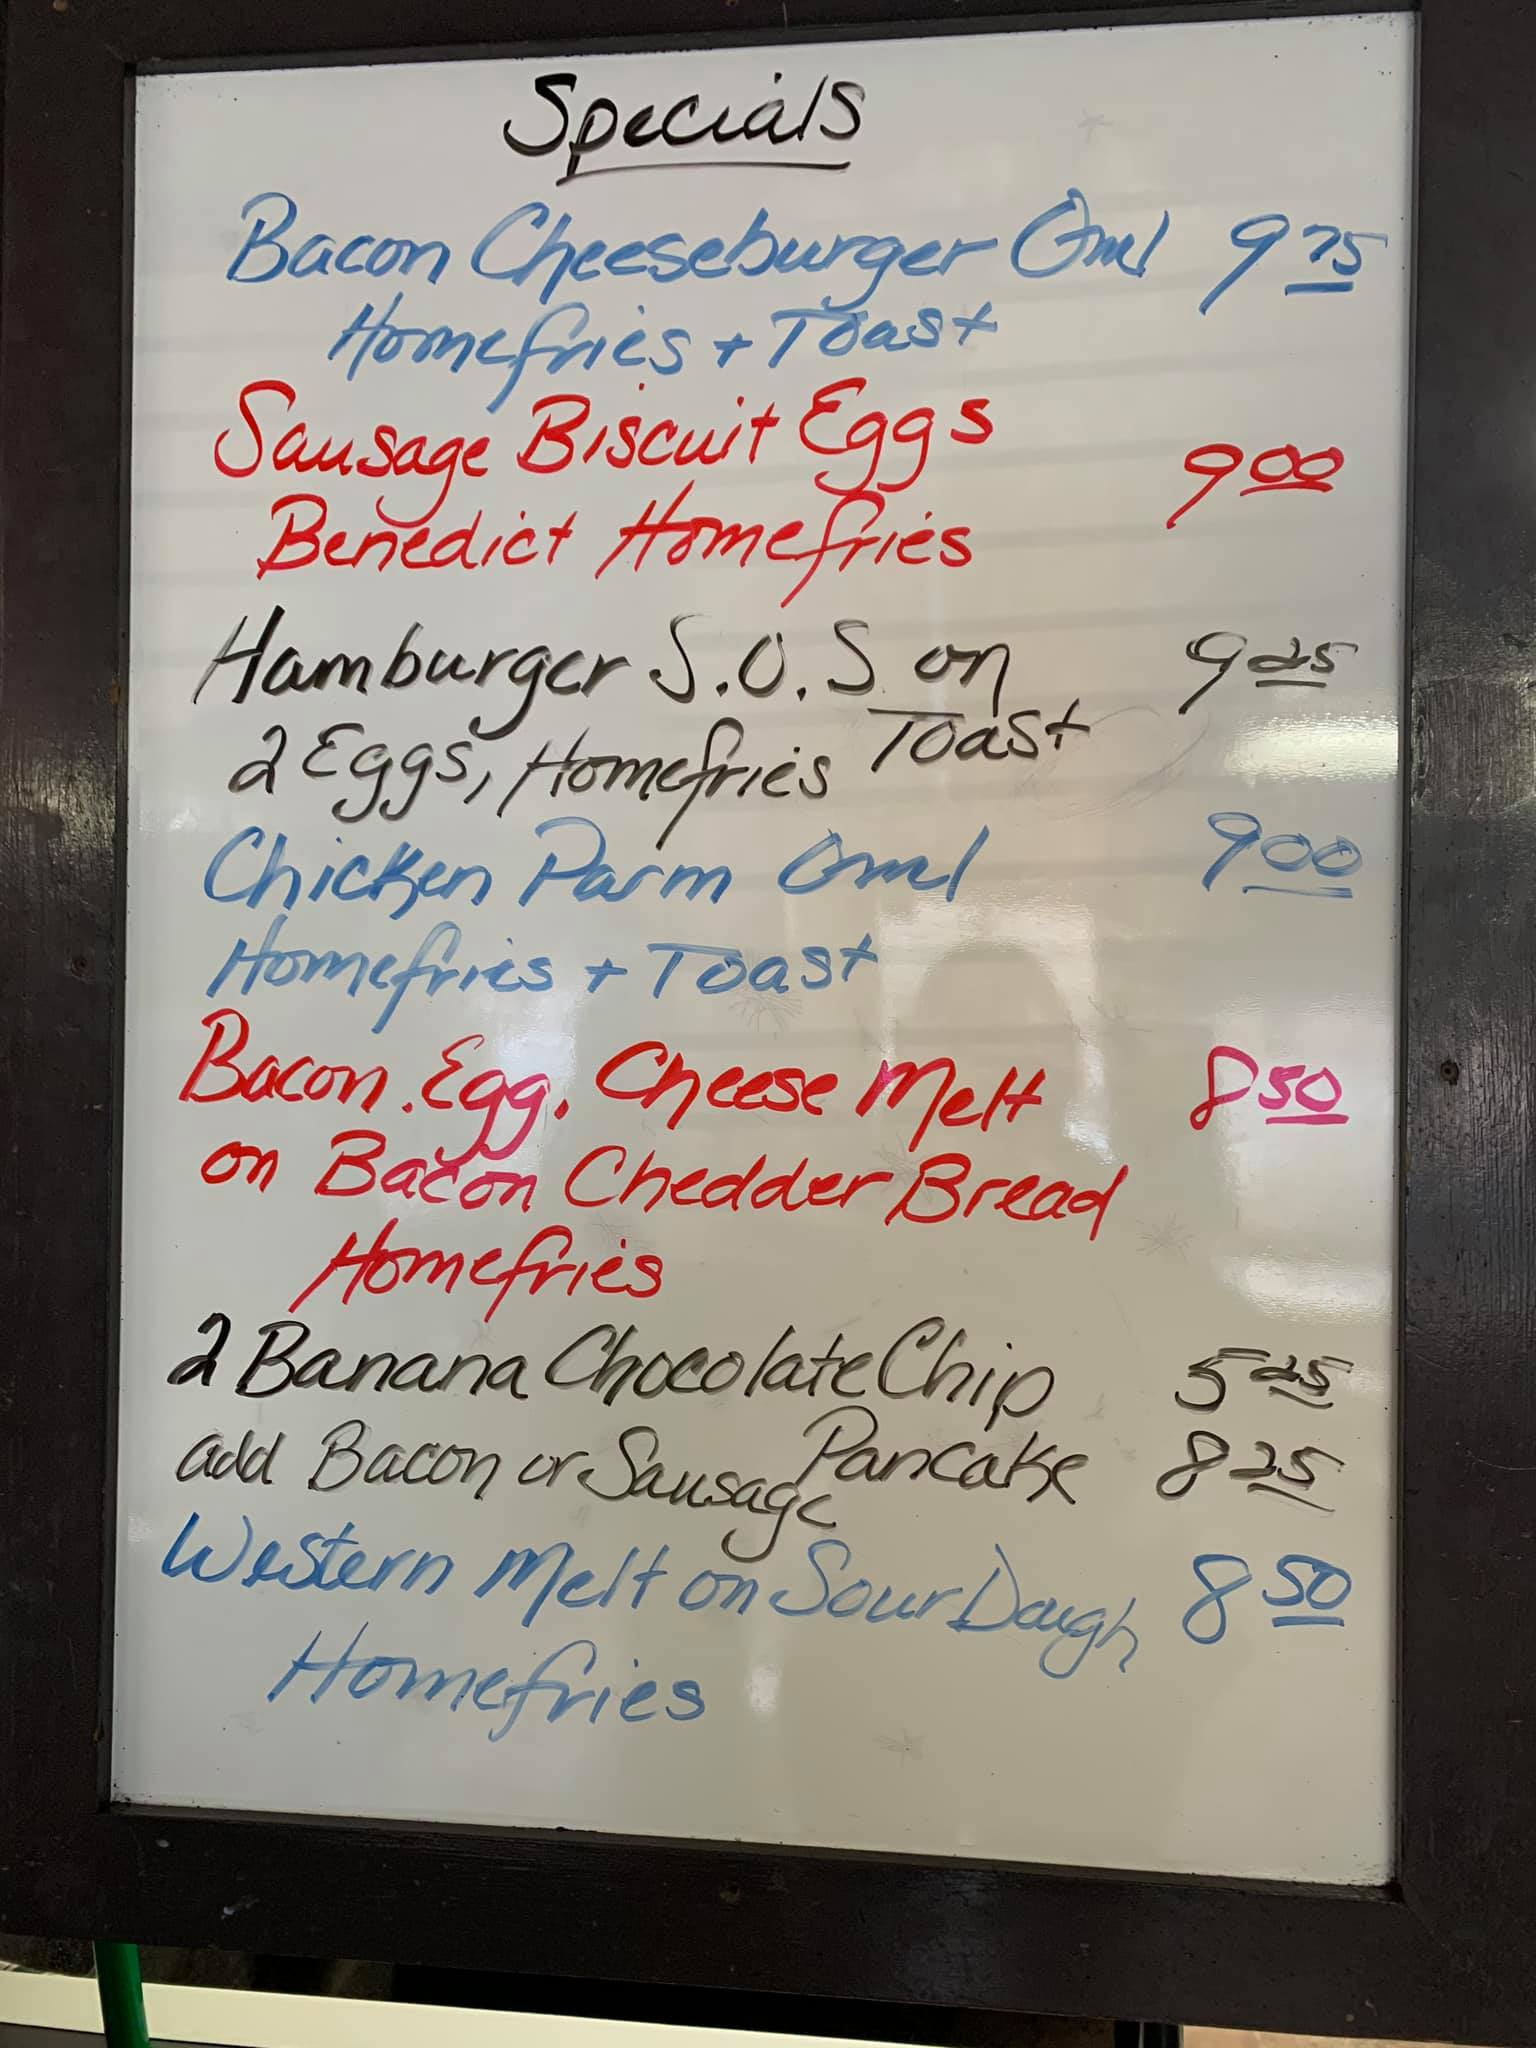 Specials
Bacon Cheeseburger Oml 9 75
Homefries + Toast
Sausage Biscuit Eggs
Benedict Homefries 9 00
Hamburger S.O.S on 9 25
Toast
2 Eggs, Homefries
Chicken Parm Oml 9 00
Homefries + Toast
Bacon. Egg. Cheese Melt 8 50
on Bacon Chedder Bread
Homefries
2 Banana Chocolate Chip 5 25
Pancake
add Bacon or Sausage 8 25
Western Melt on Sour Dough 8 50
Homefries